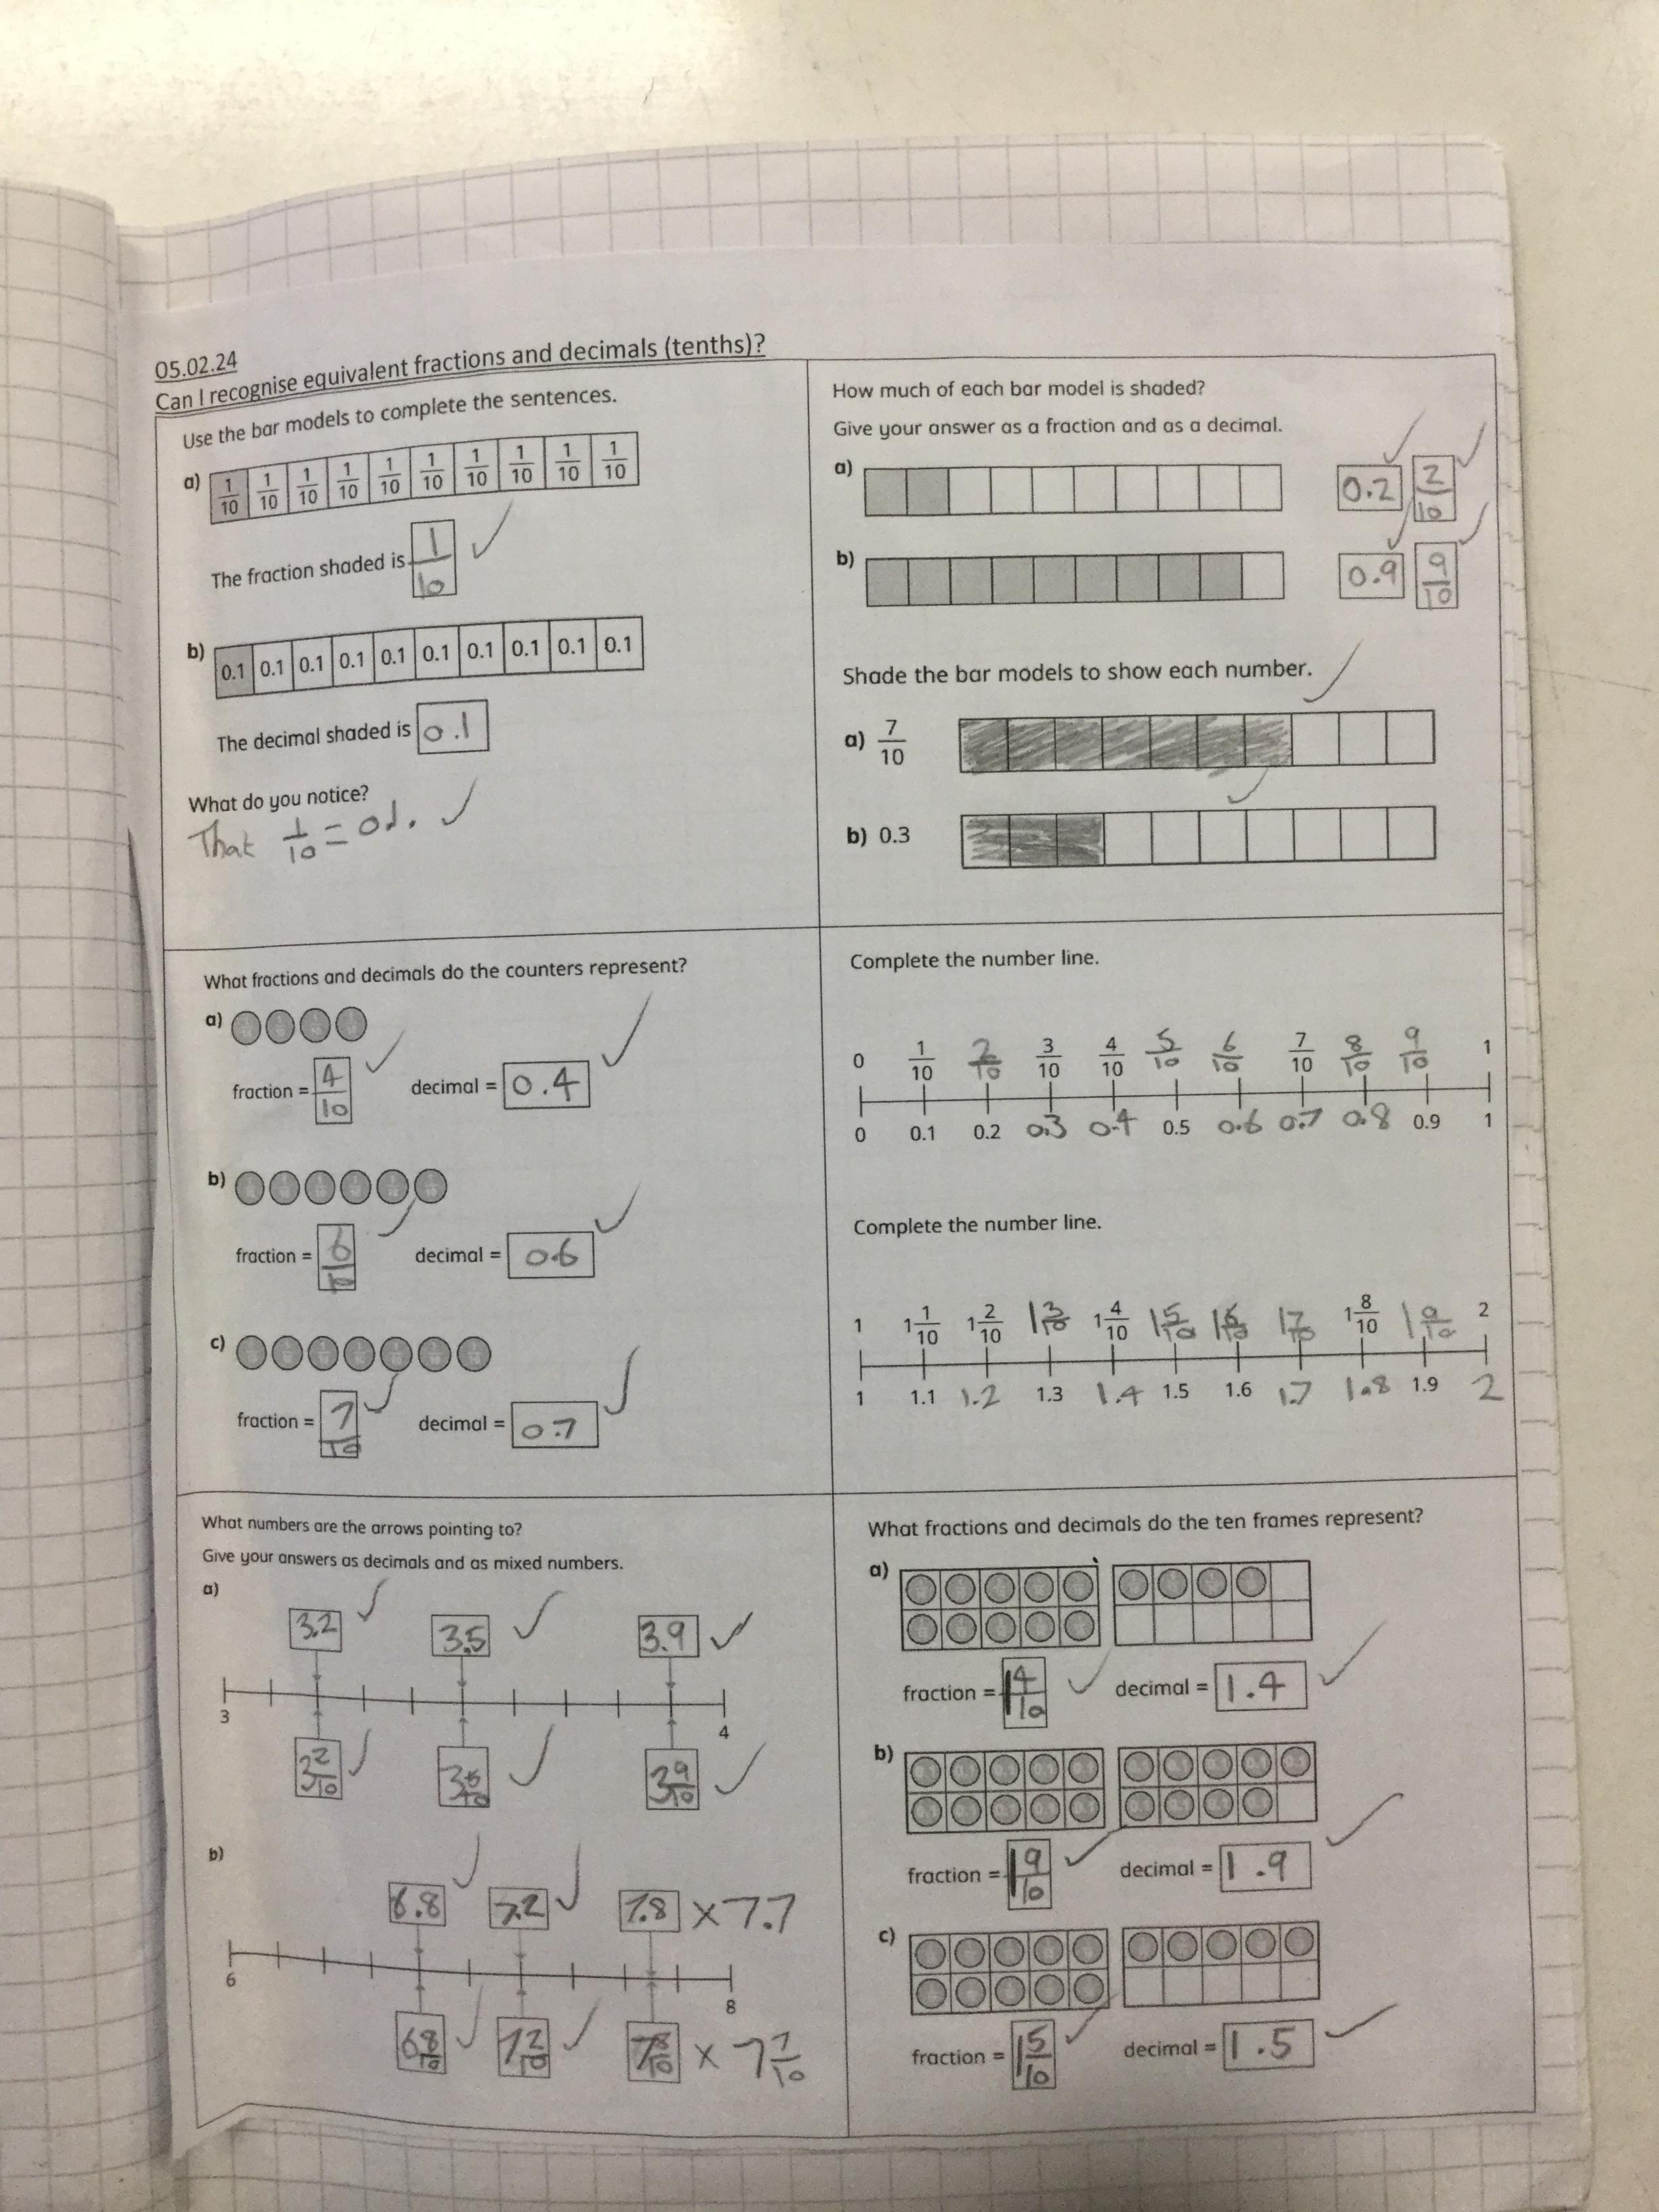 05.02.24
Can I recognise equivalent fractions and decimals (tenths)?
Use the bar models to complete the sentences.
a) 1/10 1/10 1/10 1/10 1/10 1/10 1/10 1/10 1/10 1/10
The fraction shaded is 1/10
b) 0.1 0.1 0.1 0.1 0.1 0.1 0.1 0.1 0.1 0.1
The decimal shaded is 0.1
What do you notice?
That 1/10 = 0.1.
How much of each bar model is shaded?
Give your answer as a fraction and as a decimal.
a) 0.2 2/10
b) 0.9 9/10
Shade the bar models to show each number.
a) 7/10
b) 0.3
What fractions and decimals do the counters represent?
a)
fraction = 4/10 decimal = 0.4
b)
fraction = 6/10 decimal = 0.6
c)
fraction = 7/10 decimal = 0.7
Complete the number line.
0 1/10 2/10 3/10 4/10 5/10 6/10 7/10 8/10 9/10 1
0 0.1 0.2 0.3 0.4 0.5 0.6 0.7 0.8 0.9 1
Complete the number line.
1 1 1/10 1 2/10 1 3/10 1 4/10 1 5/10 1 6/10 1 7/10 1 8/10 1 9/10 2
1 1.1 1.2 1.3 1.4 1.5 1.6 1.7 1.8 1.9 2
What numbers are the arrows pointing to?
Give your answers as decimals and as mixed numbers.
a)
3.2 3.5 3.9
3 4
3 2/10 3 5/10 3 9/10
b)
6.8 7.2 7.8 × 7.7
6 8
6 8/10 7 2/10 7 8/10 × 7 7/10
What fractions and decimals do the ten frames represent?
a)
fraction = 1 4/10 decimal = 1.4
b)
fraction = 1 9/10 decimal = 1.9
c)
fraction = 1 5/10 decimal = 1.5